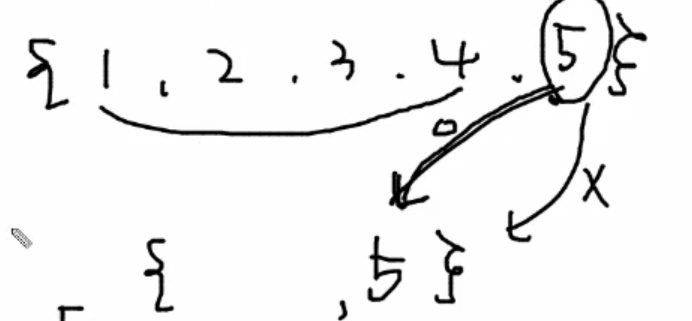 { 1 , 2 . 3 . 4 . 5 }
O
X
{ , 5 }